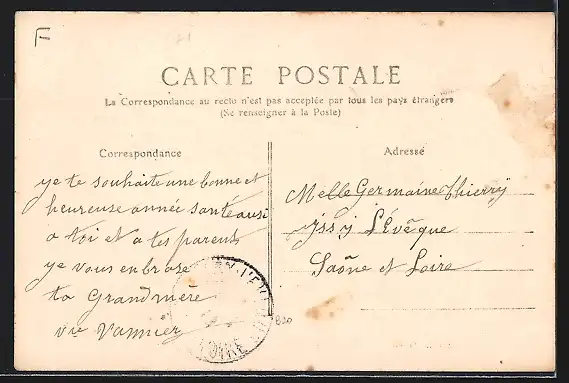 F
CARTE POSTALE
La Correspondance au recto n'est pas acceptée par tous les pays étrangers
(Se renseigner à la Poste)
Correspondance
ye te souhaite une bonne et
heureuse année santé ausi
a toi et a tes parents
ye vous enbrase
ta Grandmère
vve Vannier
Adresse
Melle Germaine Thierry
yssy Lévêque
Saône et Loire
LOIRE
B20